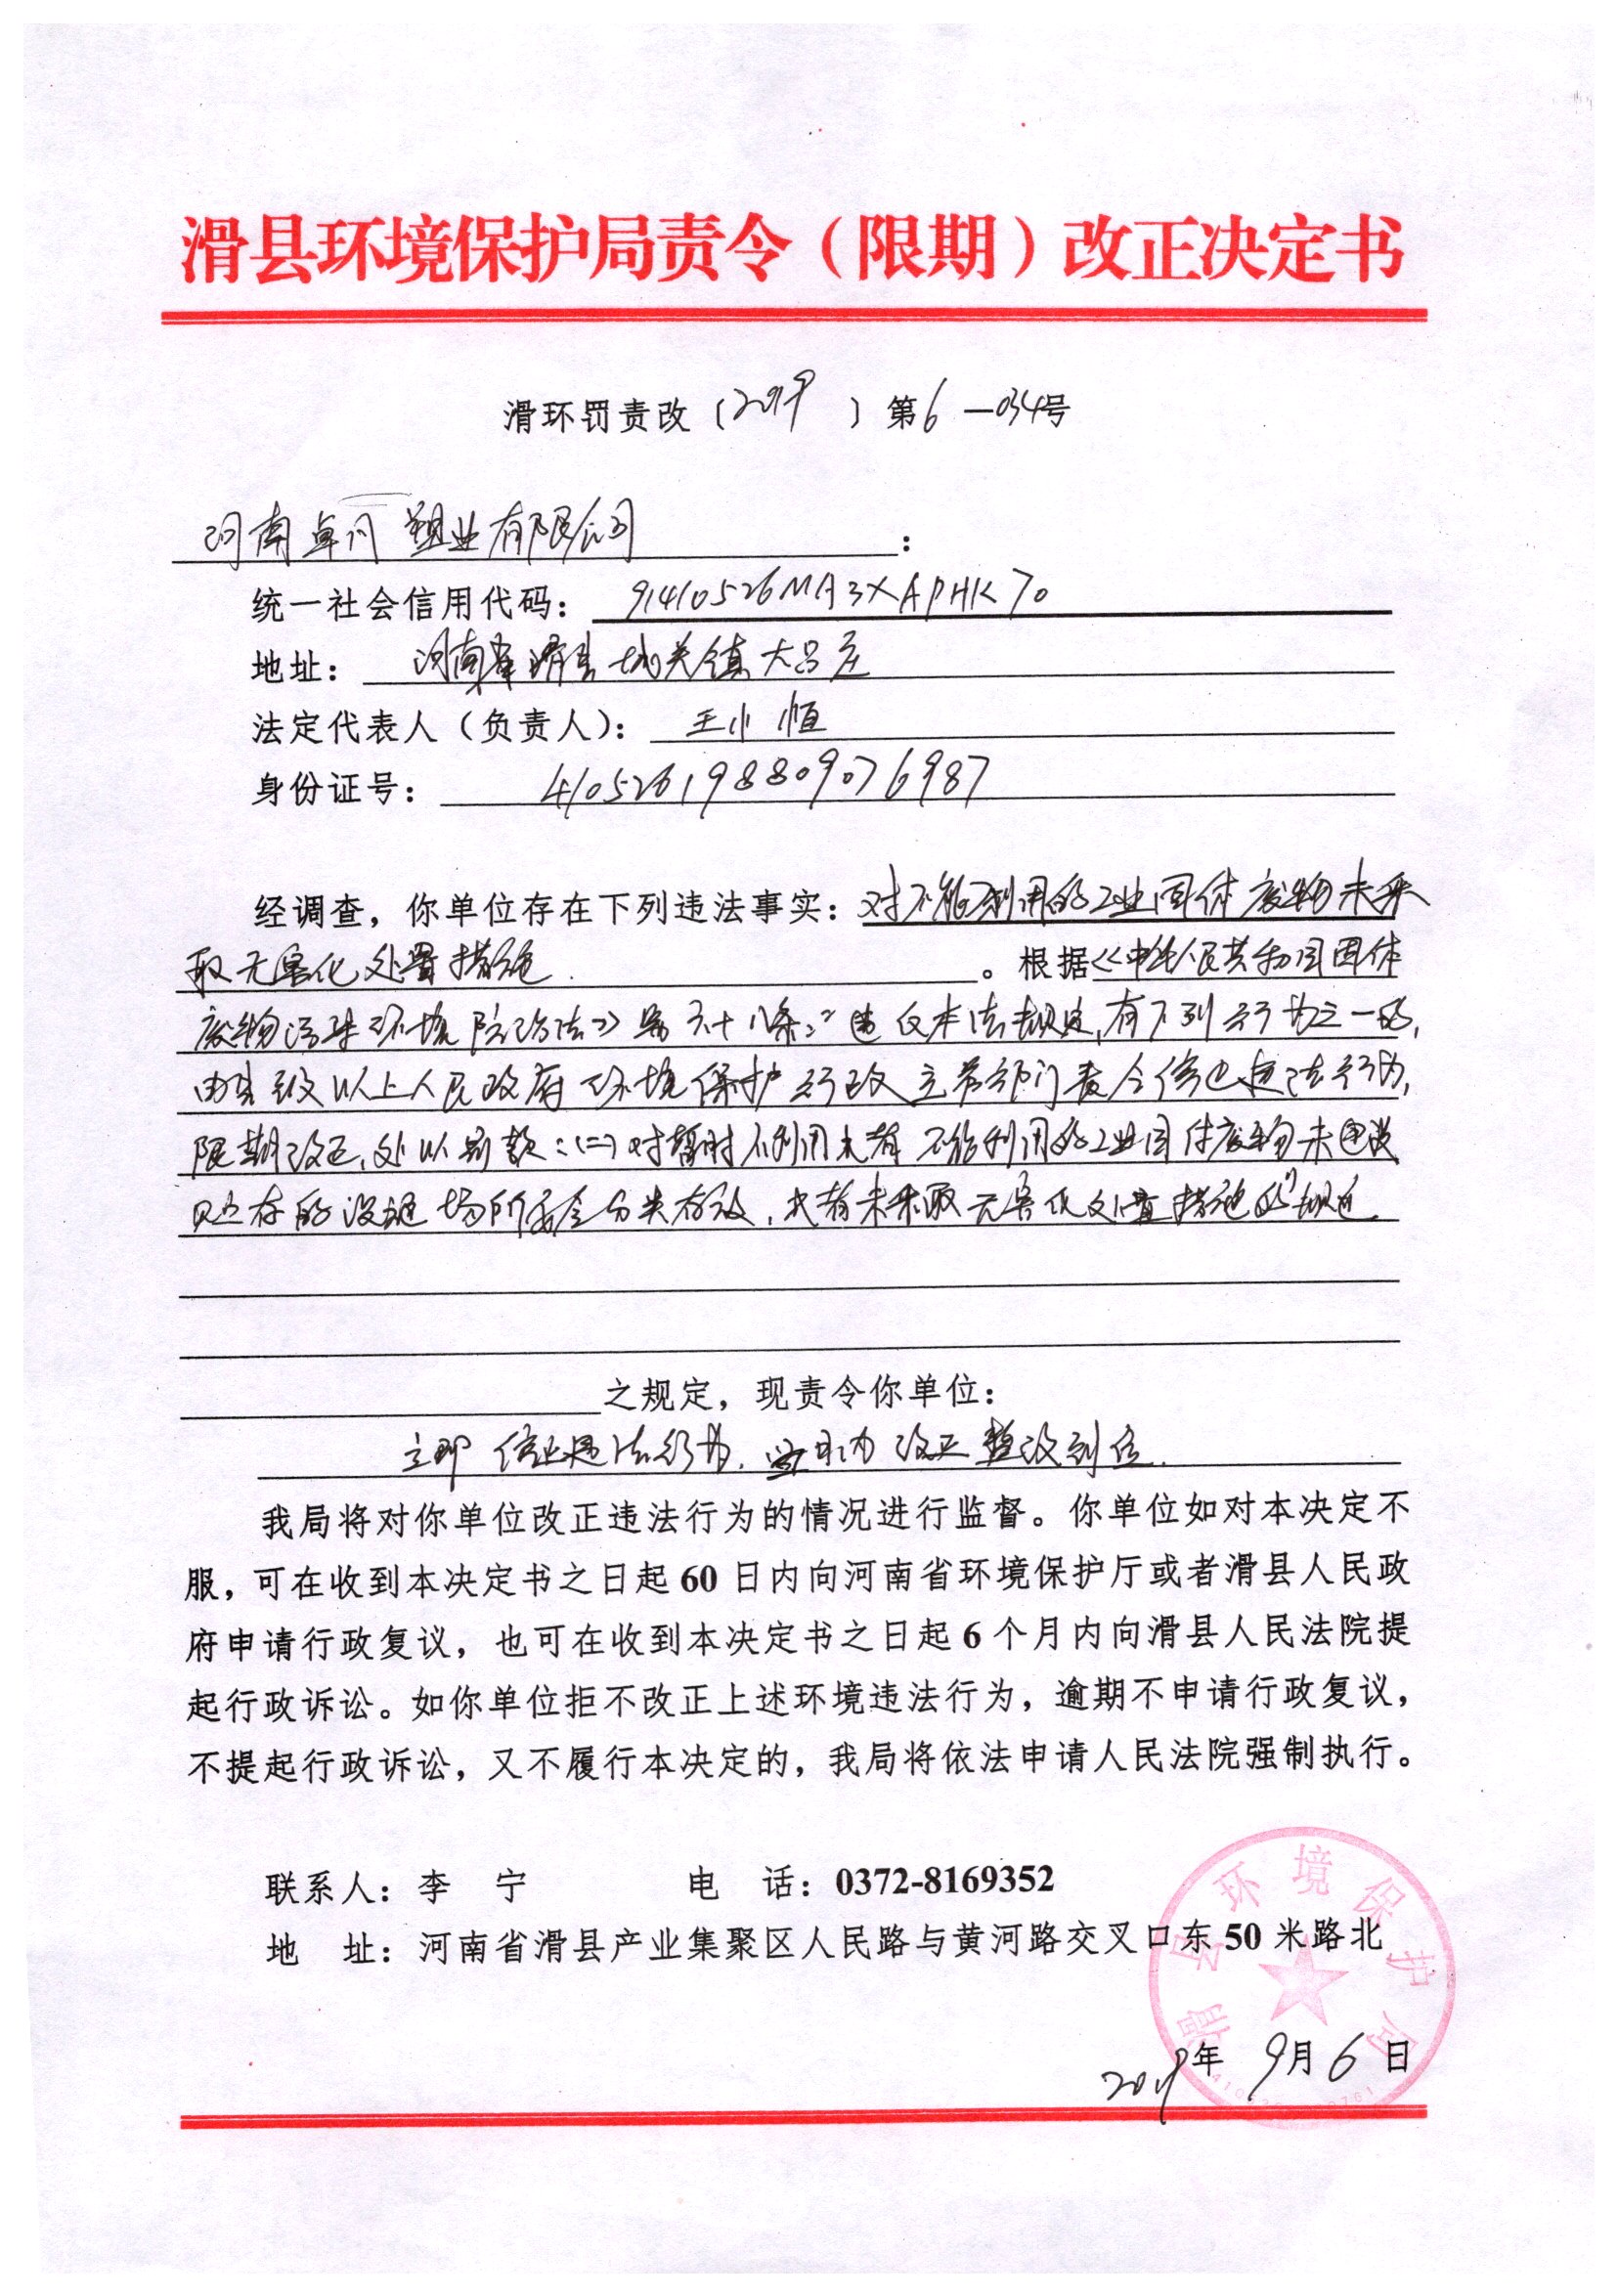 滑县环境保护局责令（限期）改正决定书
滑环罚责改〔2019〕第6—034号
河南卓 塑业有限公司：
统一社会信用代码：91410526MA3XAPHK70
地址：河南省滑县城关镇大吕庄
法定代表人（负责人）：王小恒
身份证号：410526198809076987
经调查，你单位存在下列违法事实：对不能利用的工业固体废物未采
取无害化处置措施。根据《中华人民共和国固体
废物污染环境防治法》第六十八条："违反本法规定,有下列行为之一的,
由县级以上人民政府环境保护行政主管部门责令停止违法行为,
限期改正,处以罚款：(二)对暂时不利用或者不能利用的工业固体废物未建设
贮存的设施场所安全分类存放,或者未采取无害化处置措施的"规定
之规定，现责令你单位：
立即停止违法行为, 改正整改到位.
我局将对你单位改正违法行为的情况进行监督。你单位如对本决定不
服，可在收到本决定书之日起60日内向河南省环境保护厅或者滑县人民政
府申请行政复议，也可在收到本决定书之日起6个月内向滑县人民法院提
起行政诉讼。如你单位拒不改正上述环境违法行为，逾期不申请行政复议，
不提起行政诉讼，又不履行本决定的，我局将依法申请人民法院强制执行。
联系人：李 宁 电 话：0372-8169352
地 址：河南省滑县产业集聚区人民路与黄河路交叉口东50米路北
滑县环境保护局
2019年9月6日